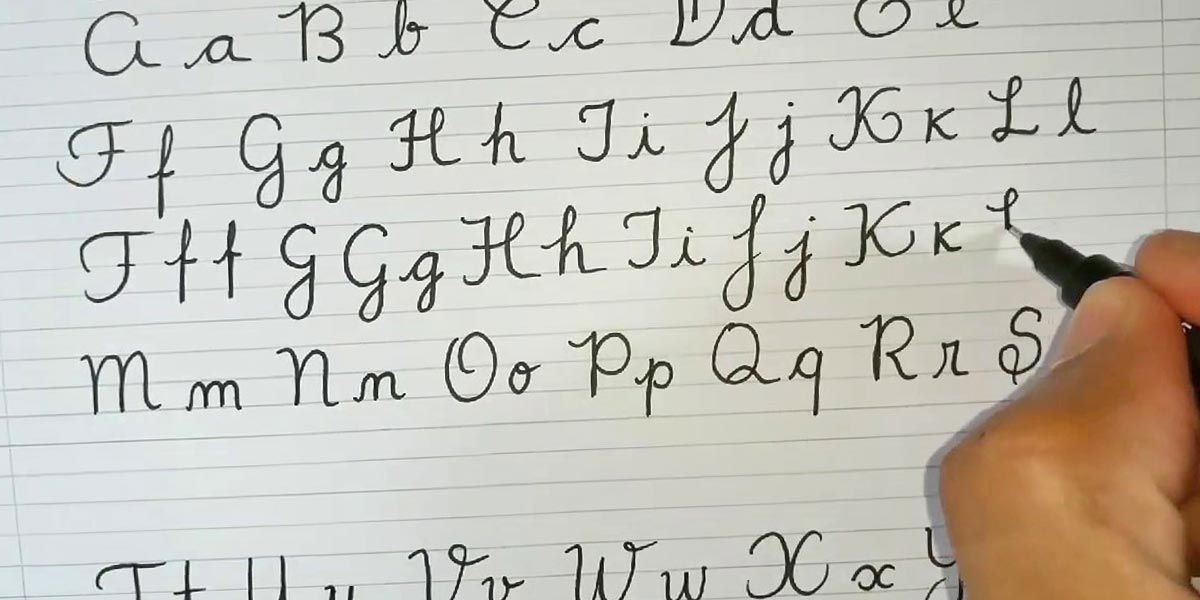 A a B b C c D d E e
F f G g H h I i J j K k L l
F f f G G g H h I i J j K k
M m N n O o P p Q q R r S
T t U u V v W w X x y